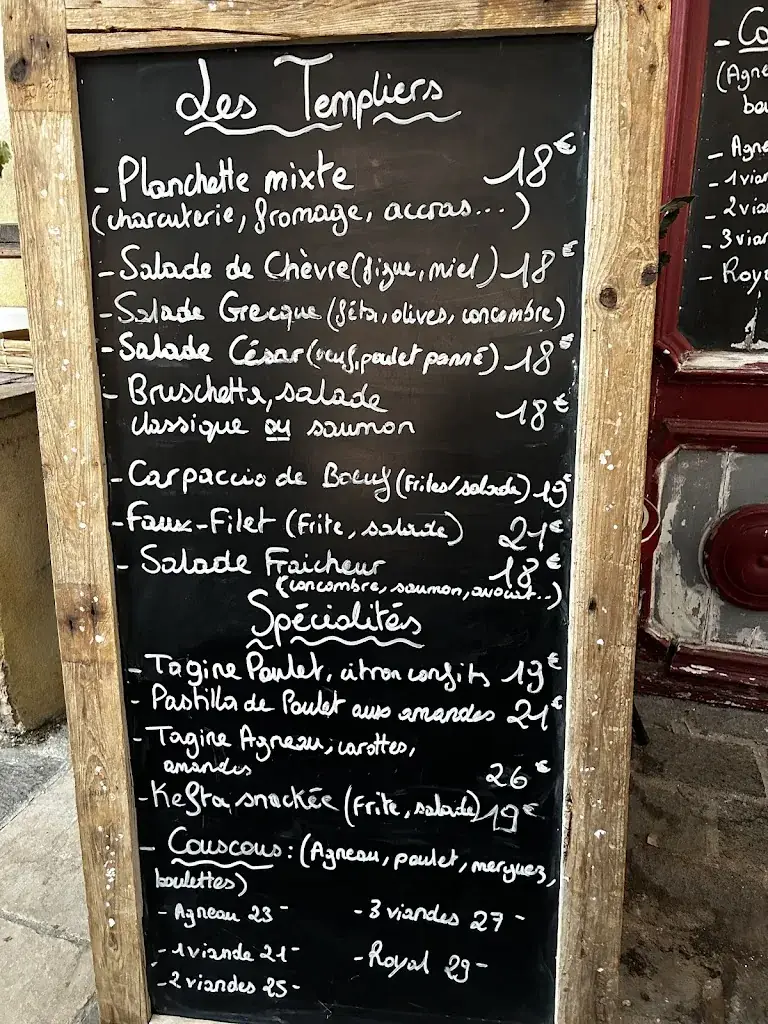 Les Templiers
- Planchette mixte 18€
(charcuterie, fromage, accras...)
- Salade de Chèvre (figue, miel) 18€
- Salade Grecque (féta, olives, concombre)
- Salade César (oeuf, poulet panné) 18€
- Bruschetta, salade
classique ou saumon 18€
- Carpaccio de Boeuf (Frites/salade) 19€
- Faux-Filet (Frite, salade) 21€
- Salade Fraicheur 18€
(concombre, saumon, avocat..)
Spécialités
- Tagine Poulet, citron confits 19€
- Pastilla de Poulet aux amandes 21€
- Tagine Agneau, carottes,
amandes 26€
- Kefta snackée (Frite, salade) 19€
- Couscous : (Agneau, poulet, merguez,
boulettes)
- Agneau 23 - - 3 viandes 27 -
- 1 viande 21 - - Royal 29 -
- 2 viandes 25 -
- Co
(Agne
bou
- Agne
- 1 vian
- 2 via
- 3 vian
- Roya